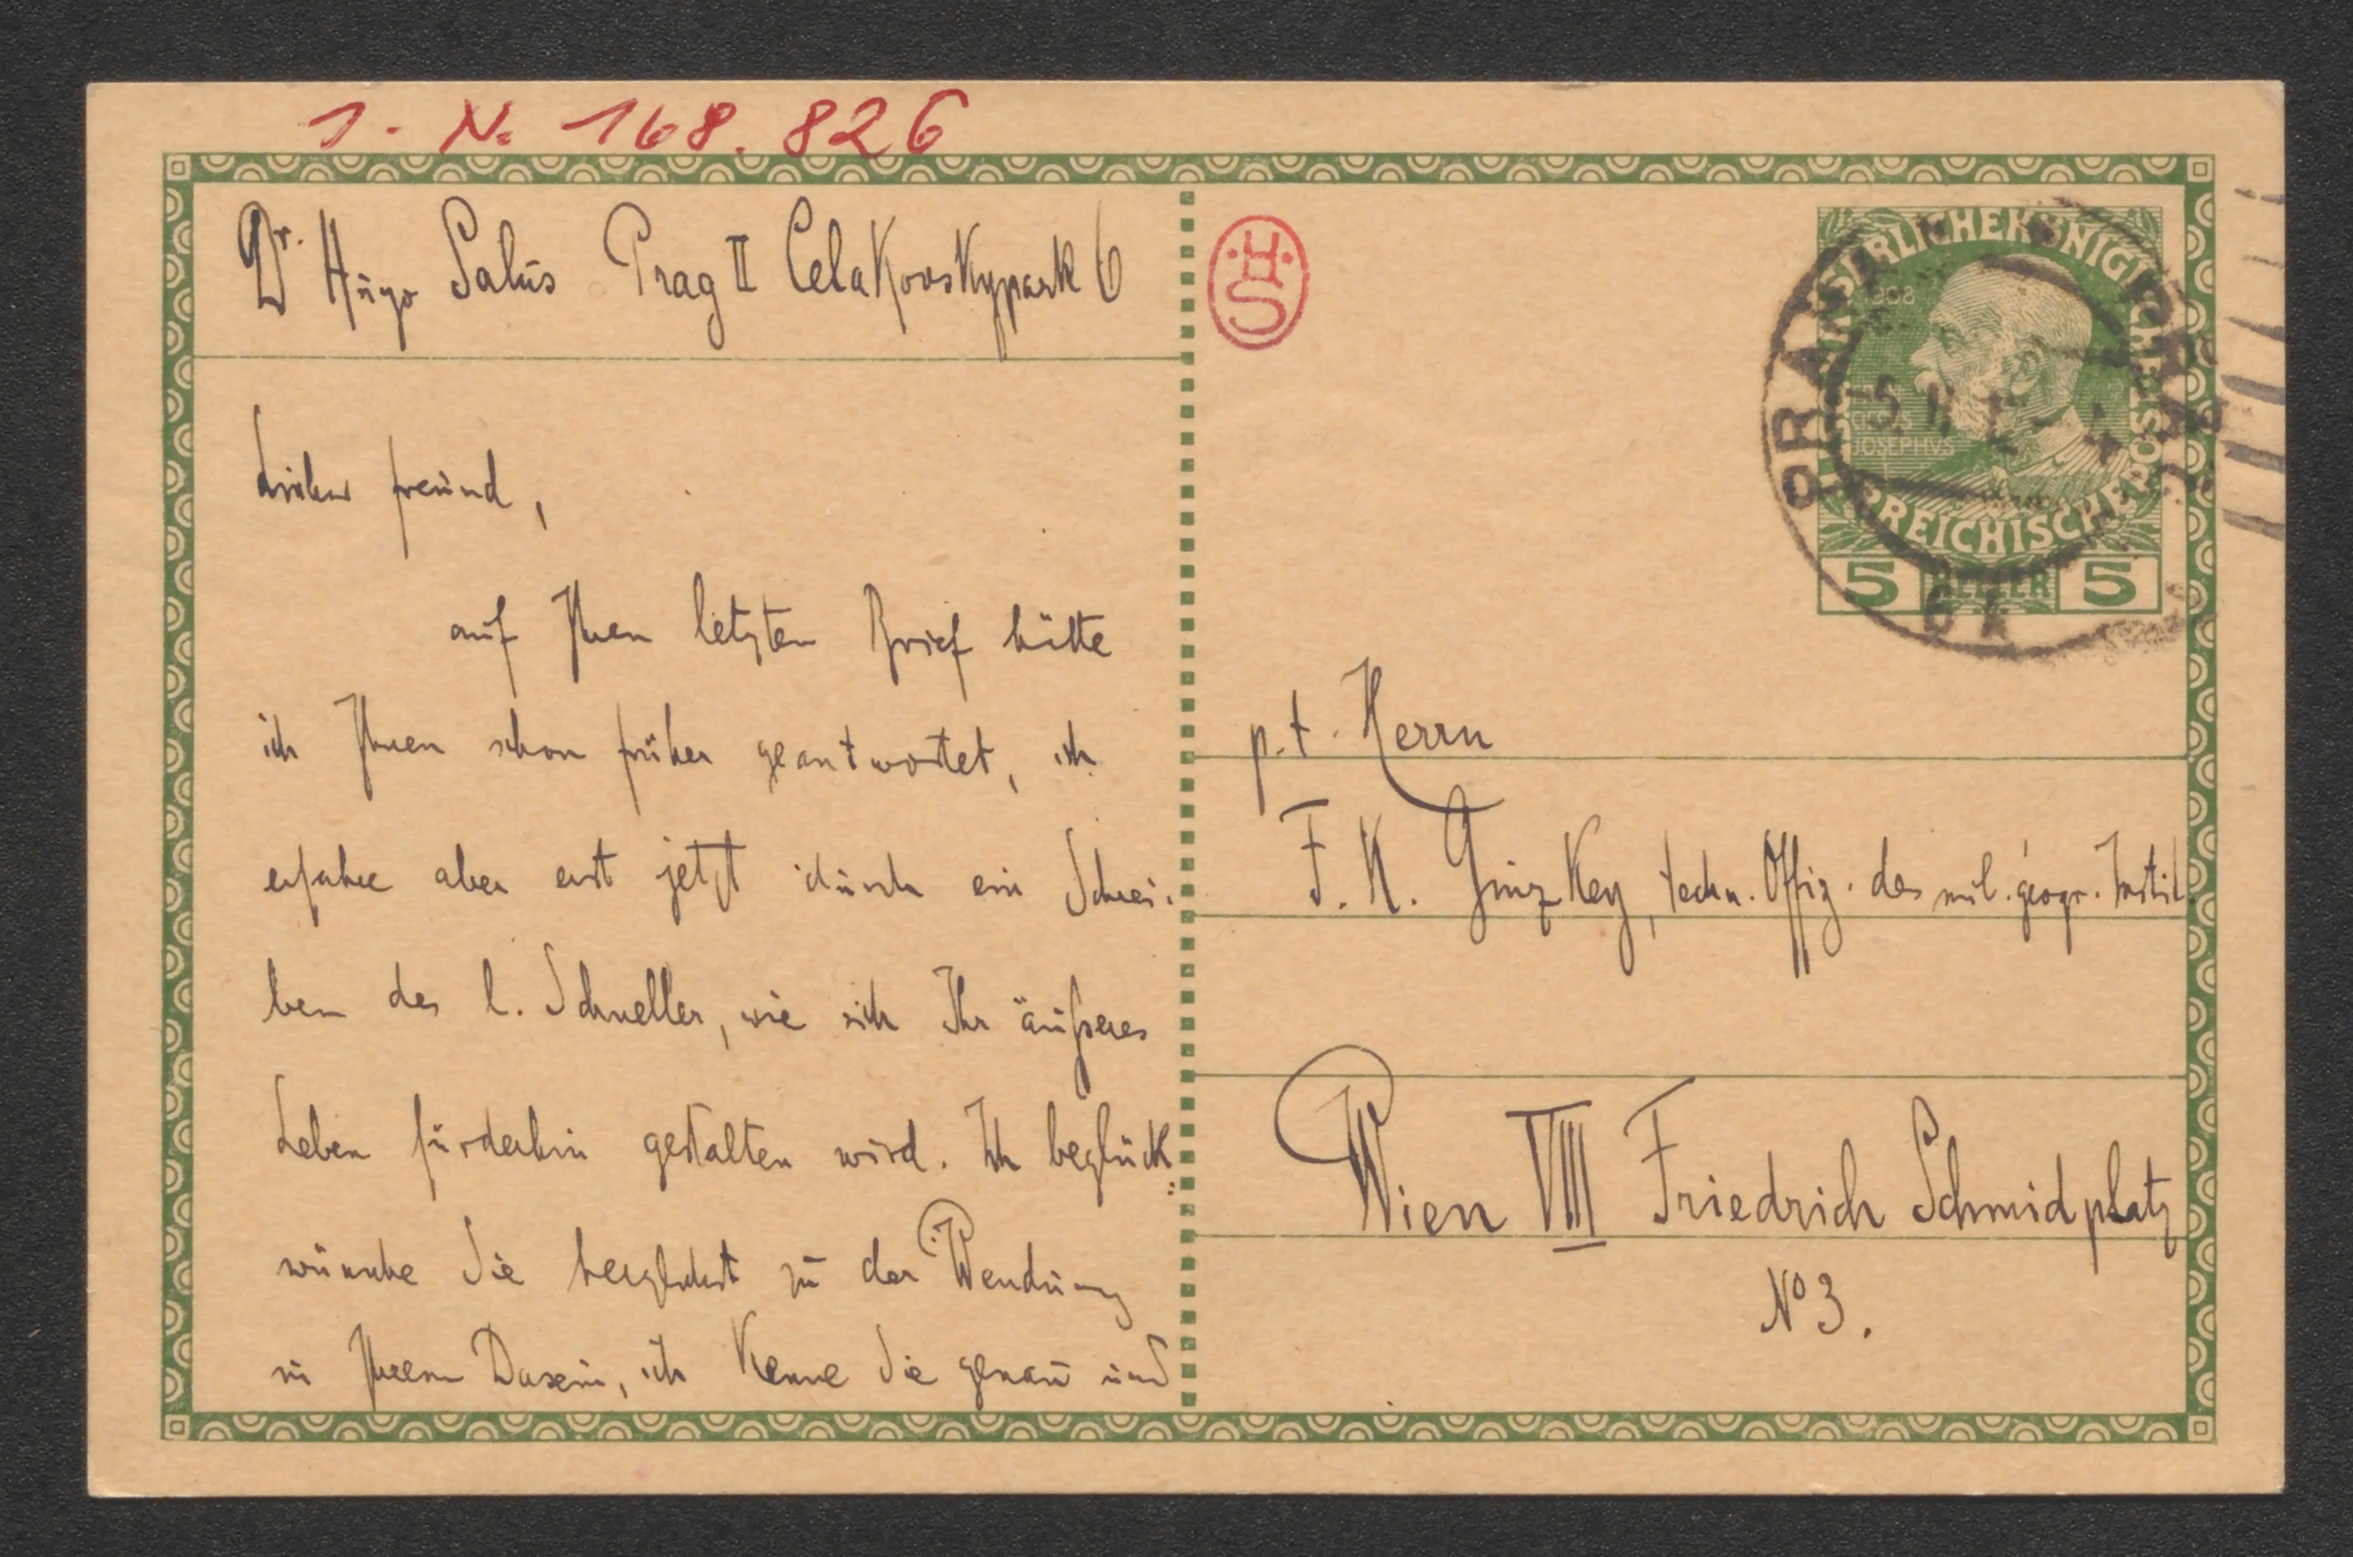 J. N. 168.826
Dr. Hugo Salus Prag II Celakovskypark 6
Lieber Freund,
auf Ihren letzten Brief hätte
ich Ihnen schon früher geantwortet, ich
erfahre aber erst jetzt durch ein Schrei-
ben des l. Schneller, wie sich Ihr äußeres
Leben fürderhin gestalten wird. Ich beglück-
wünsche Sie herzlichst zu der Wendung
in Ihrem Dasein, ich kenne Sie genau und
HS
KAISERLICHE KÖNIGLICHE
1908
JOSEPHVS
5 HELLER 5
6k
p. t. Herrn
F. K. Ginzkey, techn. Offiz. des mil. geogr. Instit.
Wien VIII Friedrich Schmidplatz
No 3.